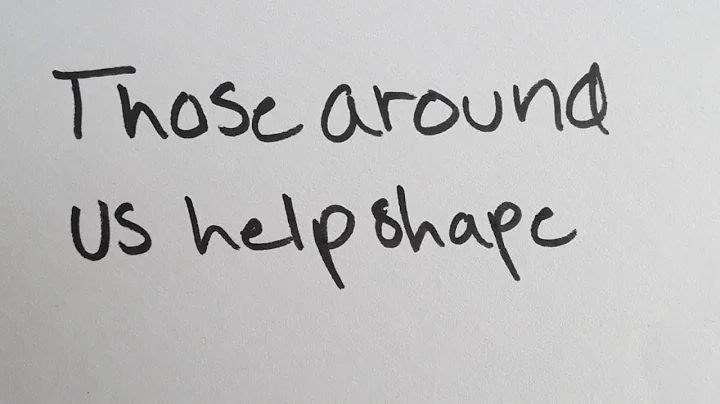 Those around
us help shape